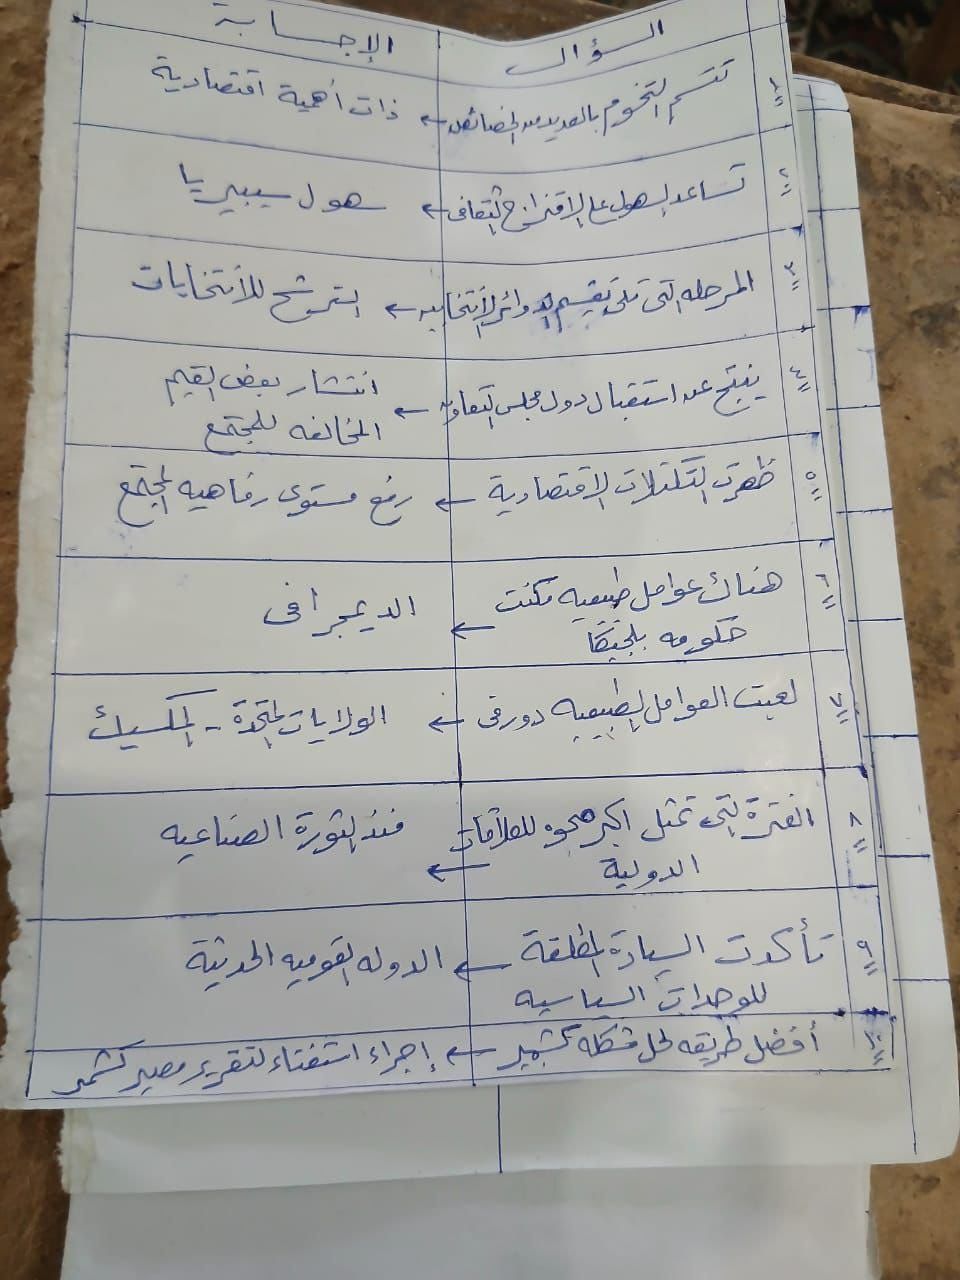 السؤال الإجابة
١ تتسم التخوم بالعديد من الخصائص ← ذات أهمية اقتصادية
٢ تساعد السهول على الاقتراح الثقافى ← سهول سيبيريا
٣ المرحله التى تلى تقسيم الدوائر الأنتخابيه ← الترشح للأنتخابات
٤ ينتج عن استقبال دول مجلس التعاون ← انتشار بعض القيم
المخالفه للمجتمع
٥ ظهرت التكتلات الاقتصادية ← رفع مستوى رفاهيه المجتمع
٦ هناك عوامل طبيعيه مكنت
حكومه بلجيكا ← الديمجرافى
٧ لعبت العوامل الطبيعيه دور فى ← الولايات المتحدة - المكسيك
٨ الفترة التى تمثل اكبر للعلاقات
الدولية ← منذ الثورة الصناعيه
٩ تأكدت السيادة المطلقة
للوحدات السياسيه ← الدوله القوميه الحديثة
١٠ أفضل طريقه لحل مشكله كشمير ← إجراء استفتاء لتقرير مصير كشمير